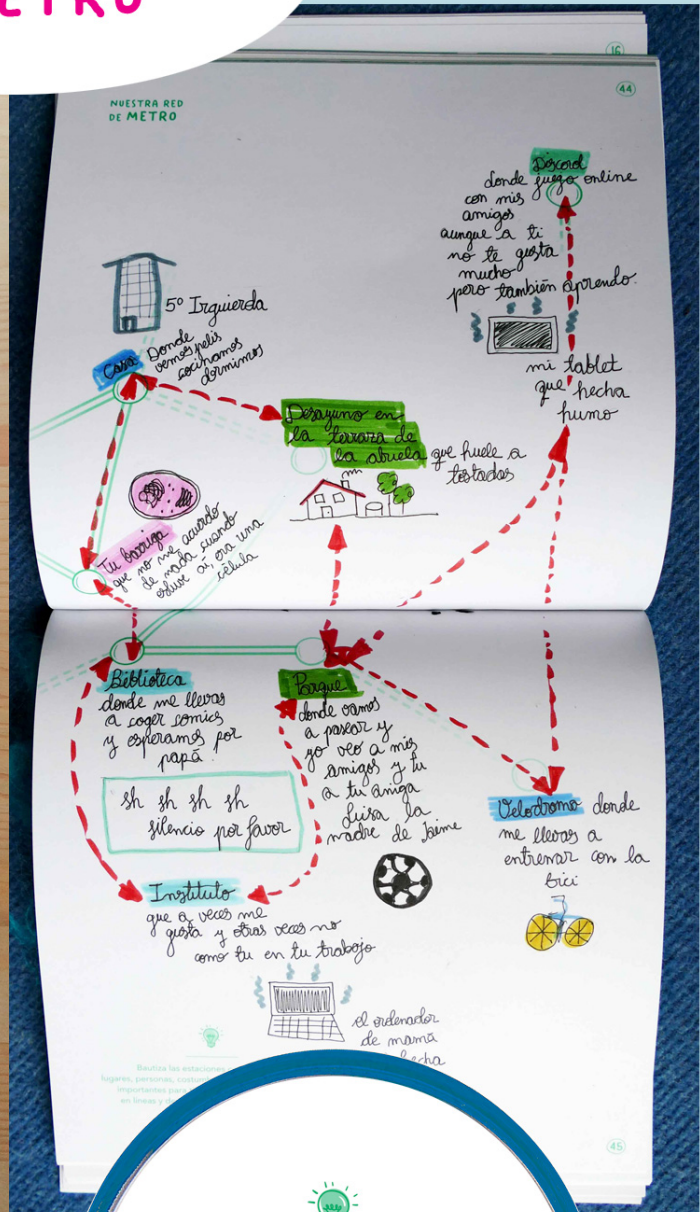 METRO
16
44
NUESTRA RED
DE METRO
Discord
donde juego online
con mis
amigos
aunque a ti
no te gusta
mucho
pero también aprendo.
mi tablet
que hecha
humo
5º Izquierda
Casa
Donde
vemos pelis
cocinamos
dormimos
Desayuno en
la terraza de
la abuela que huele a
tostadas
Tu barriga
que no me acuerdo
de nada cuando
estuve ai, era una
célula
Biblioteca
donde me llevas
a coger comics
y esperamos por
papá.
sh sh sh sh
silencio por favor
Parque
donde vamos
a pasear y
yo veo a mis
amigos y tu
a tu amiga
Luisa la
madre de Jaime
Velodromo donde
me llevas a
entrenar con la
bici
Instituto
que a veces me
gusta y otras veces no
como tu en tu trabajo
el ordenador
de mamá
hecha
Bautiza las estaciones
lugares, personas,
importantes para
en líneas y
45